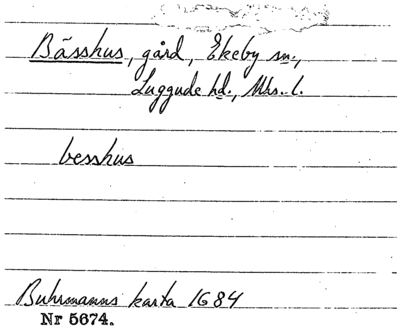 Bässhus, gård, Ekeby sn.,
Luggude hd., Mhs. l.
besshus
Buhrmanns karta 1684
Nr 5674.